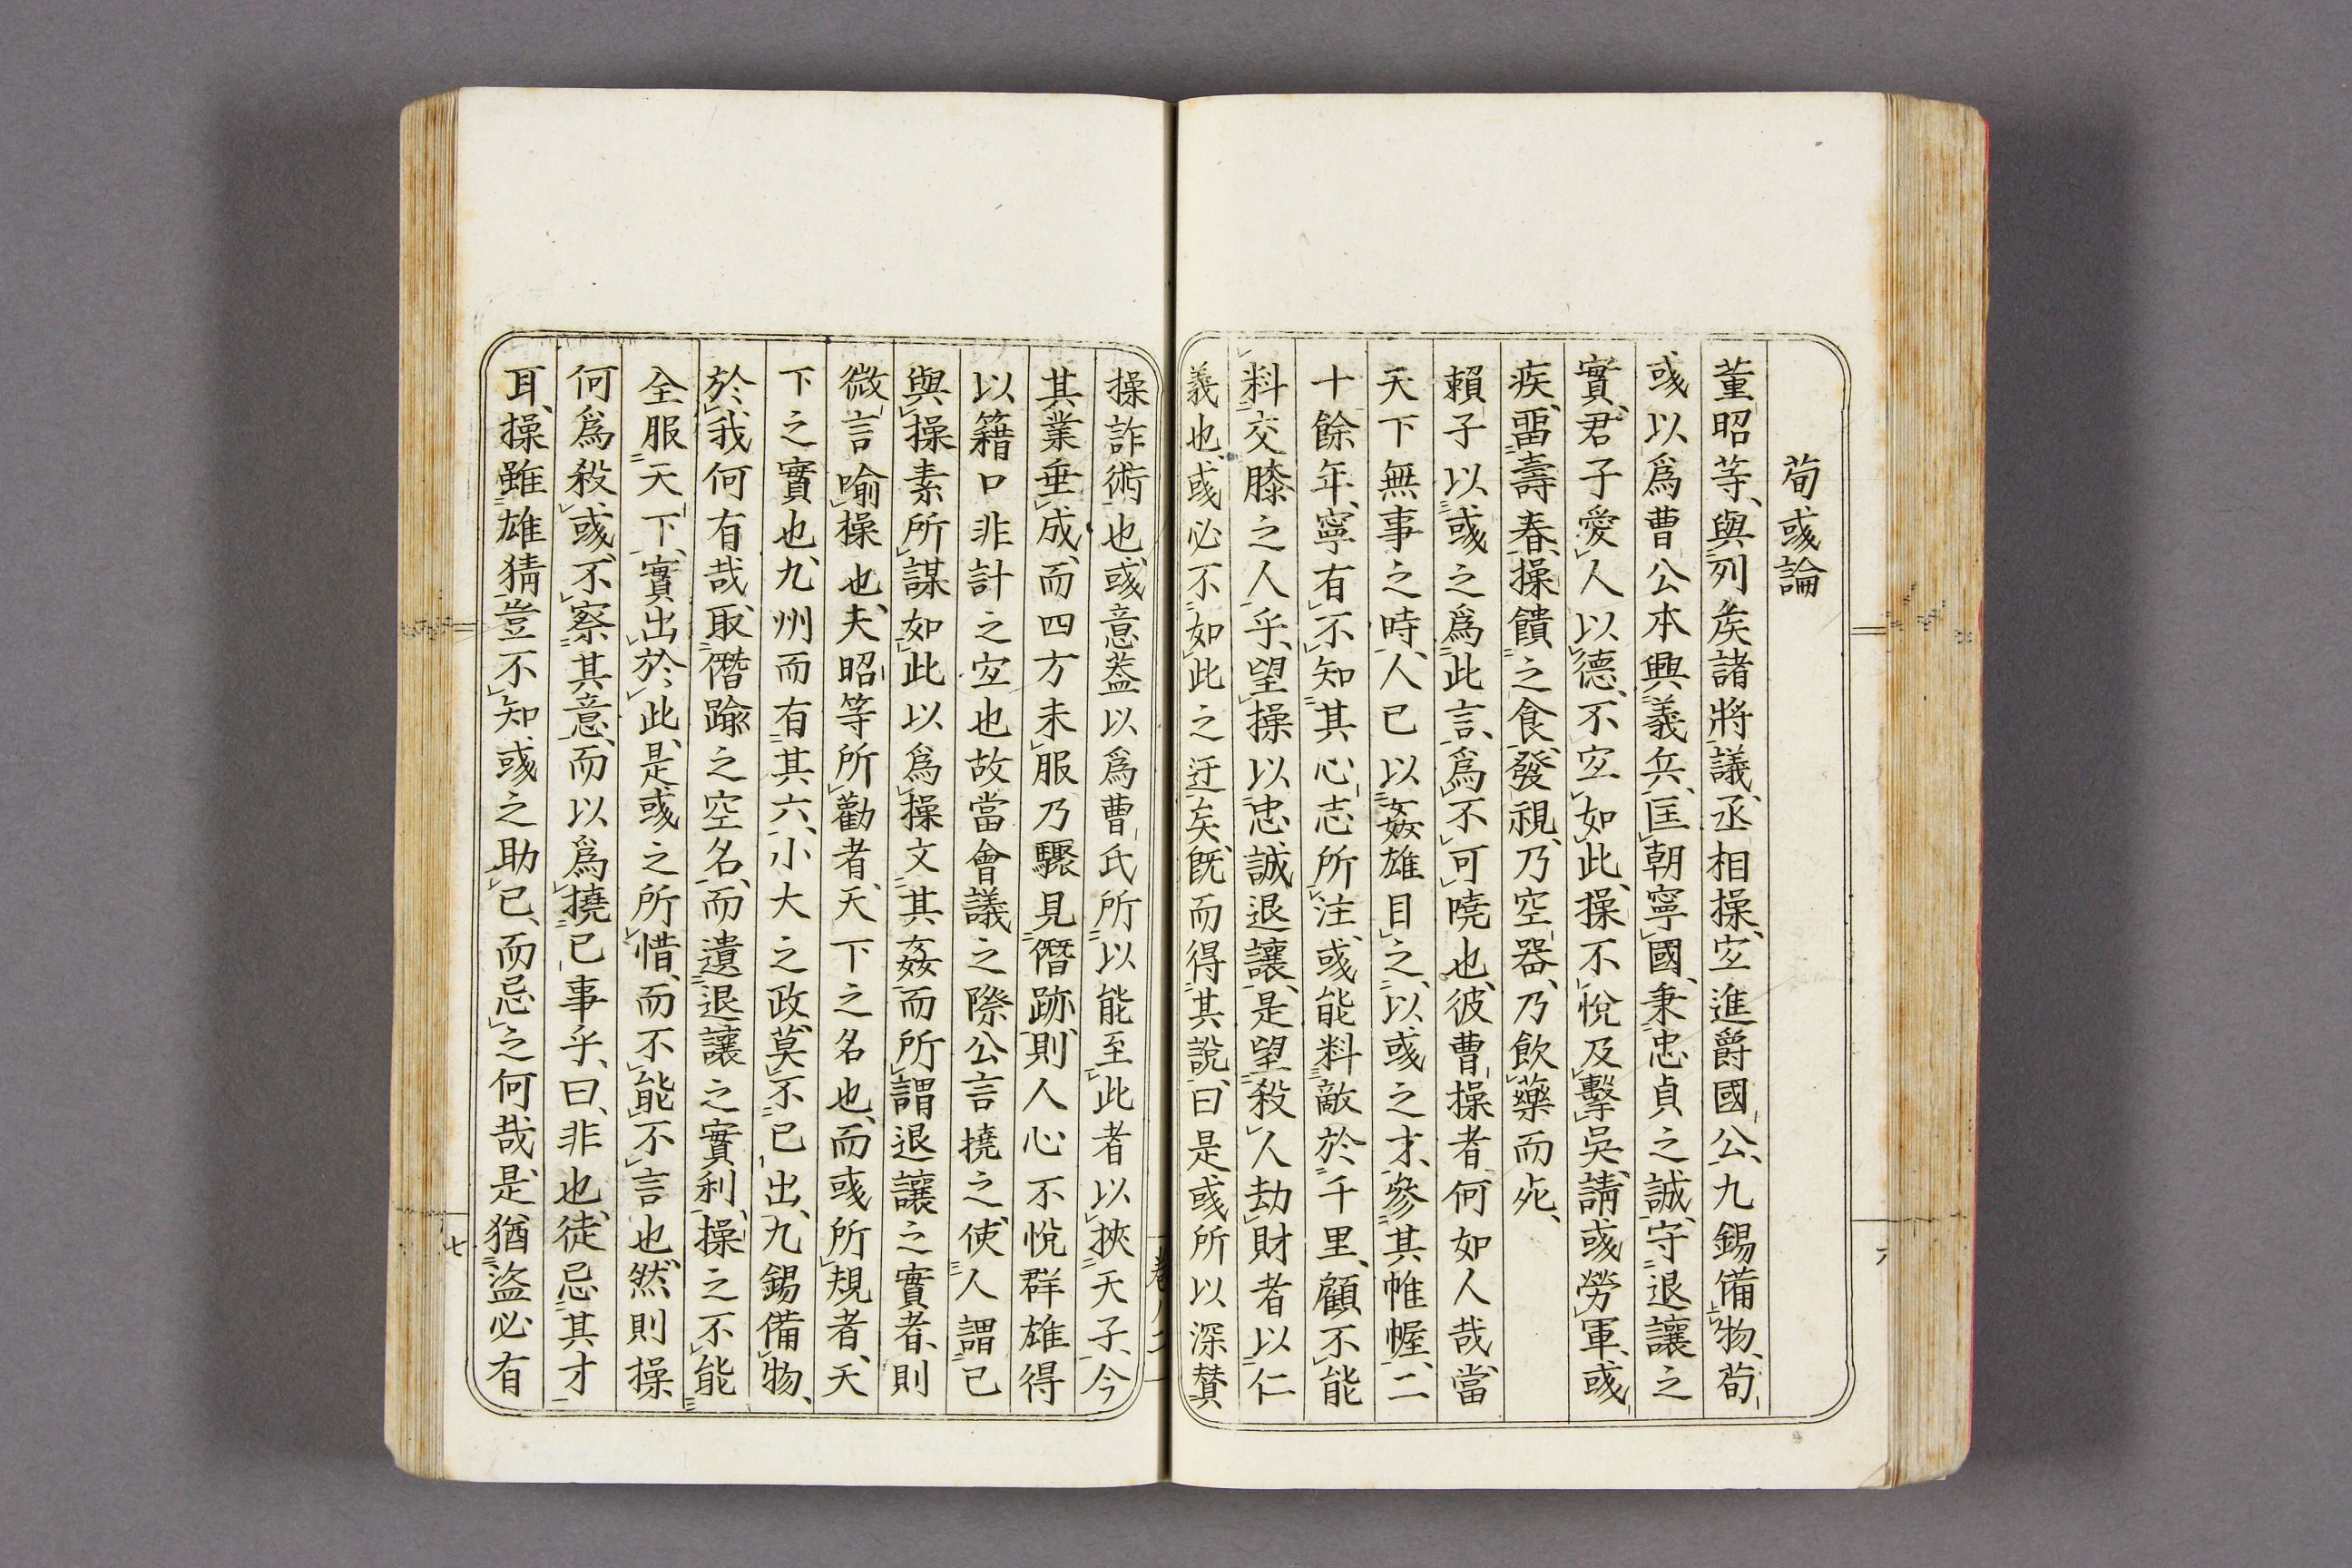 荀彧論
董昭等、與列矦諸將議、丞相操、宐進爵國公、九錫備物、荀
彧以爲曹公本興義兵、匡朝寧國、秉忠貞之誠、守退讓之
實、君子愛人以德、不宐如此、操不悅及擊吳、請彧勞軍、彧
疾、畱壽春、操饋之食、發視、乃空器、乃飲藥而死、
賴子以彧之爲此言、爲不可曉也、彼曹操者、何如人哉、當
天下無事之時、人已以姦雄目之、以彧之才、參其帷幄、二
十餘年、寧有不知其心志所注、彧能料敵於千里、顧不能
料交膝之人乎、望操以忠誠退讓、是望殺人劫財者以仁
義也、彧必不如此之迂矣、既而得其說、曰是彧所以深賛
操詐術也、彧意葢以爲曹氏所以能至此者以挾天子、今
其業垂成、而四方未服乃驟見僭跡、則人心不悅群雄得
以籍口非計之宐也故當會議之際公言撓之、使人謂已
與操素所謀如此以爲操文其姦而所謂退讓之實者、則
微言喻操也、夫昭等所勸者、天下之名也、而彧所規者、天
下之實也、九州而有其六、小大之政、莫不已出、九錫備物、
於我何有哉、取僭踰之空名、而遺退讓之實利、操之不能
全服天下、實出於此、是彧之所惜、而不能不言也、然則操
何爲殺彧、不察其意、而以爲撓已事乎、曰、非也、徒忌其才
耳、操雖雄猜豈不知彧之助已、而忌之何哉、是猶盜必有
七